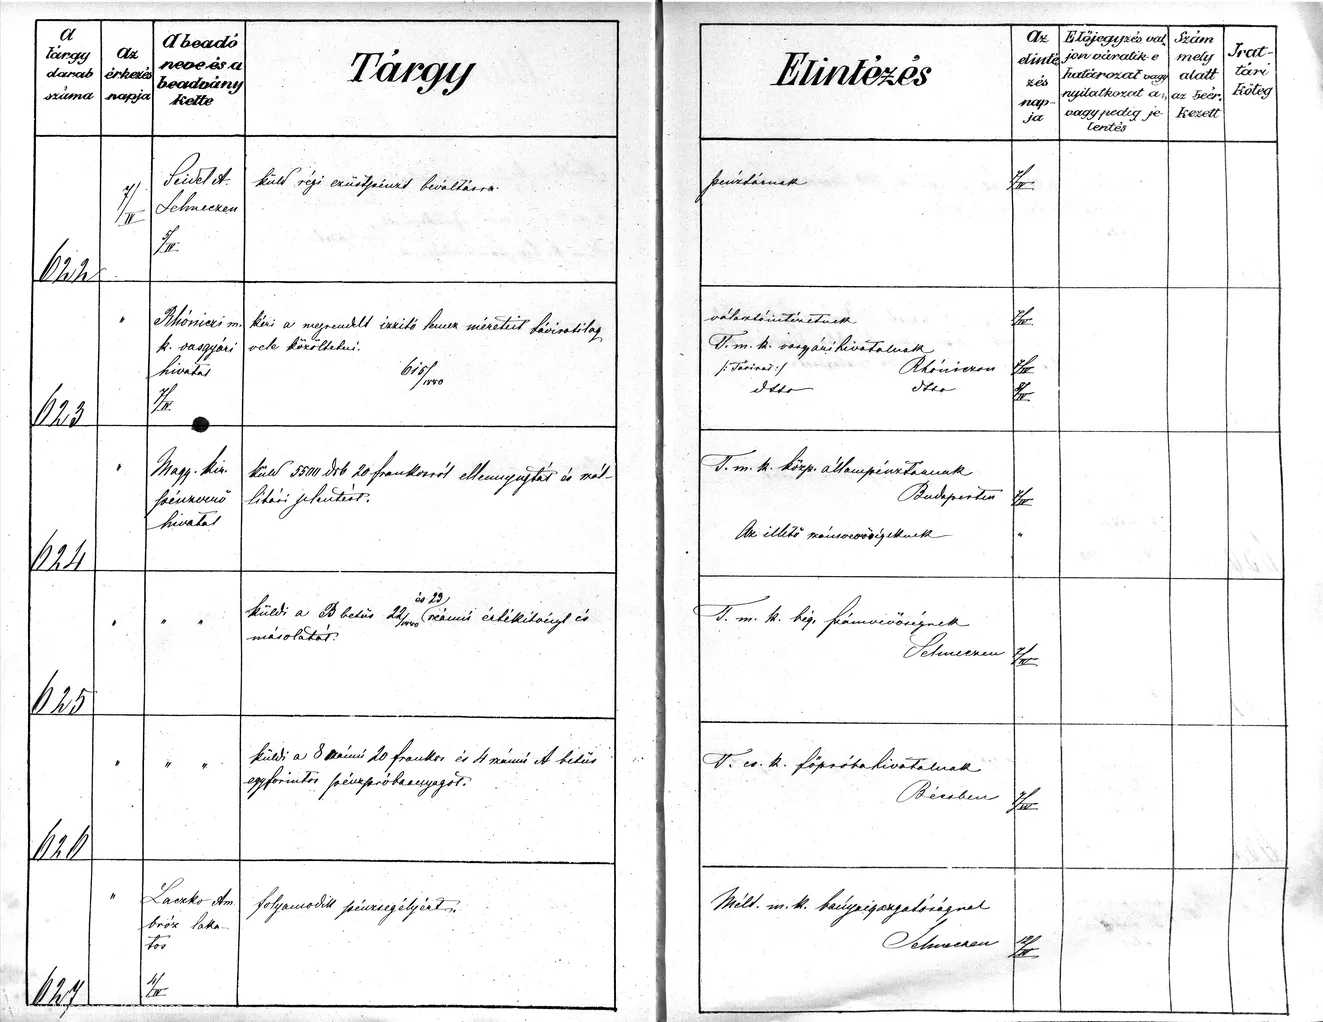 A tárgy darab száma
Az érkezés napja
A beadó neve és a beadvány kelte
Tárgy
Elintézés
Az elinté zés nap- ja
Előjegyzés val- jon váratik-e határozat vagy nyilatkozat a., vagy pedig je- lentés
Szám mely alatt az beér- kezett
Irat- tári köteg
622
7/IV
Seidel A.
Selmeczen
5/IV
küld régi ezüstpénzt beváltásra.
pénztárnak
7/IV
623
"
Rhóniczi m.
k. vasgyári
hivatal
7/IV.
kéri a megrendelt izzitó lemez méreteit táviratilag
vele közöltetni.
615/1880
választóintézetnek
7/IV
T. m. k. vasgyári hivatalnak
/: Távirat :/ Rhóniczon 7/IV
dtto dtto 8/IV
624
"
Magy. kir.
pénzverő
hivatal
küld 5500 drb 20 frankosról ellennyugtát és
jelentést.
T. m. k. közp. állampénztárnak
Budapesten 7/IV
Az illető számvevőségeknek "
625
" " "
küldi a B betüs 22/1880 és 23 számú értékitvényt és
másolatát.
T. m. k. bág. számvevőségnek
Selmeczen 7/IV
626
" " "
küldi a 8 számú 20 frankos és 4 számú A betüs
egyforintos pénzpróbaanyagot.
T. cs. k. főpróbahivatalnak
Bécsben 7/IV
627
"
Laczko Am-
bróz laka-
tos
4/IV
folyamodik pénzsegélyért.
Mélt. m. k. bányaigazgatóságnal
Selmeczen 12/IV